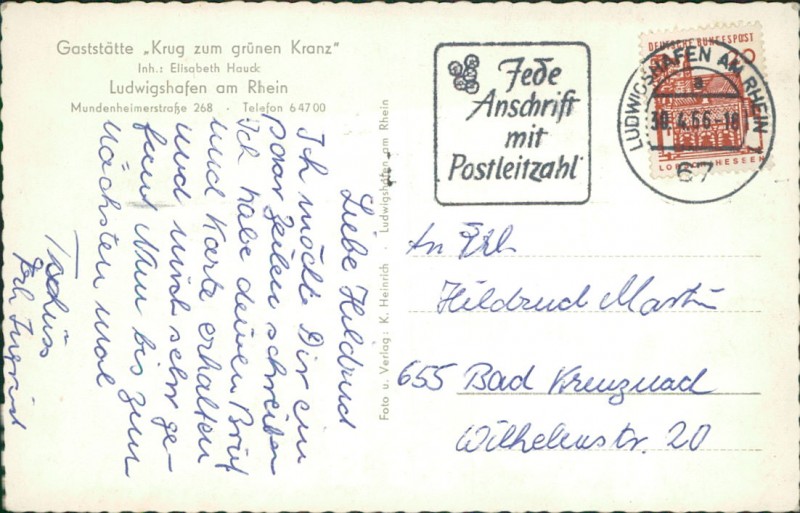 Gaststätte „Krug zum grünen Kranz"
Inh.: Elisabeth Hauck
Ludwigshafen am Rhein
Mundenheimerstraße 268 · Telefon 6 47 00
Liebe Hildrud
Ich möchte Dir ein
paar Zeilen schreiben
Ich habe deinen Brief
und Karte erhalten
und mich sehr ge-
freut Nun bis zum
nächsten mal
Tschüss
Foto u. Verlag: K. Heinrich · Ludwigshafen am Rhein
Jede
Anschrift
mit
Postleitzahl
DEUTSCHE BUNDESPOST
LORSCH/HESSEN
LUDWIGSHAFEN AM RHEIN
a
30.4.66-18
67
An Frl.
Hildrud Martin
655 Bad Kreuznach
Wilhelmstr. 20